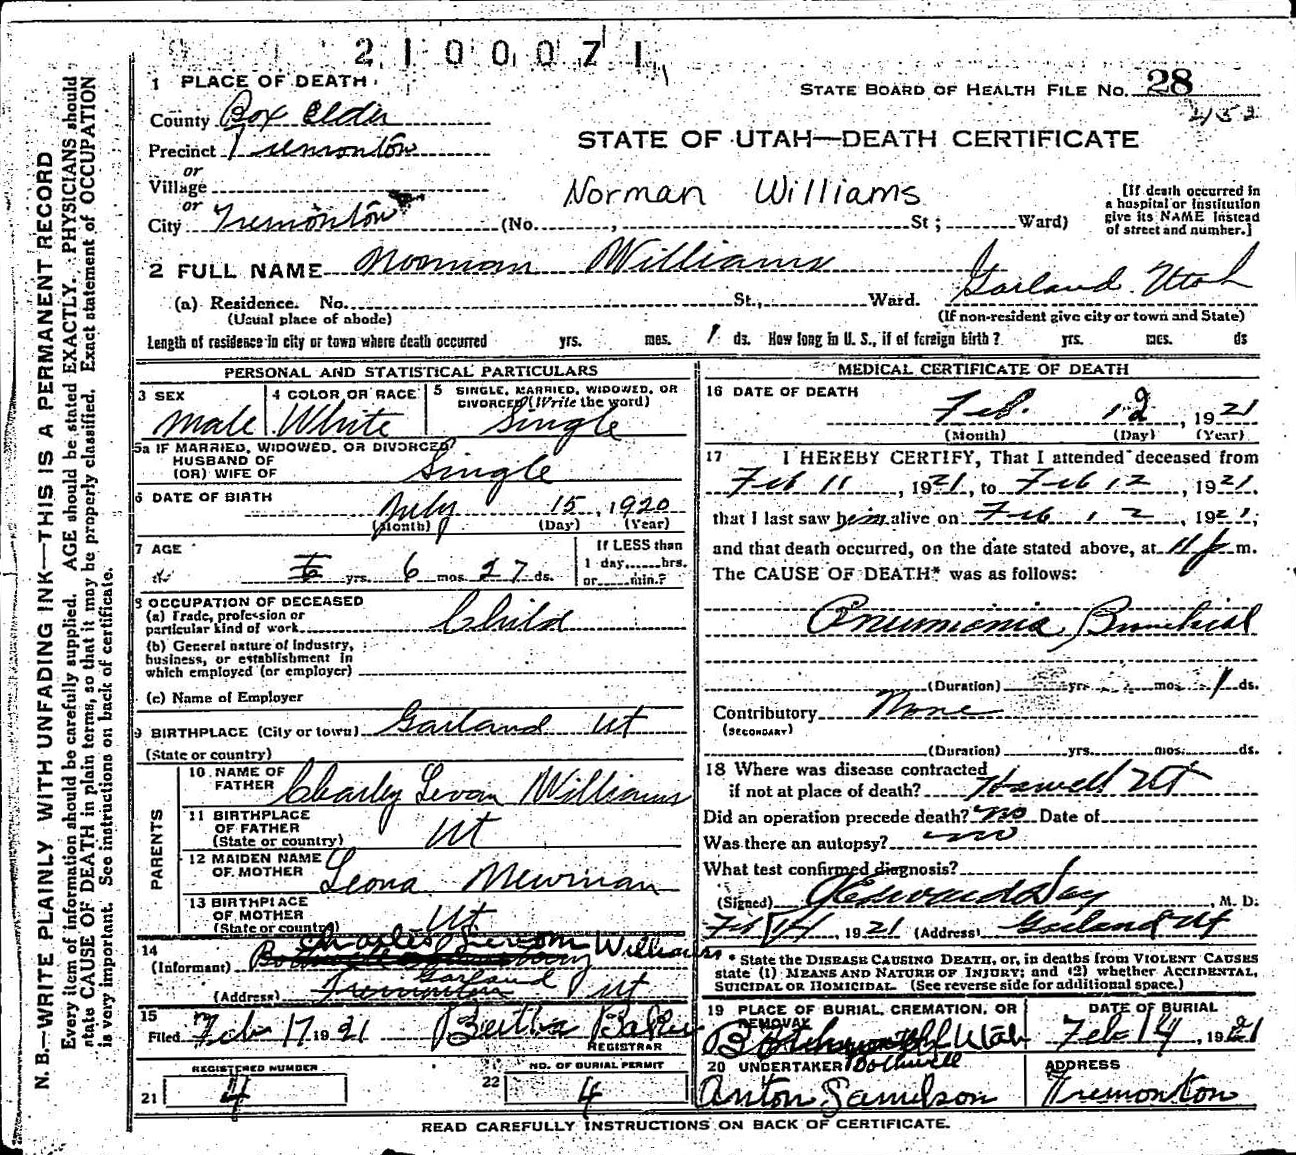 210071
1 PLACE OF DEATH
STATE BOARD OF HEALTH FILE No. 28
County Box Elder
2153
STATE OF UTAH—DEATH CERTIFICATE
Precinct Tremonton
or
Village
Norman Williams
[If death occurred in a hospital or institution give its NAME instead of street and number.]
or
City Tremonton (No. , St ; Ward)
2 FULL NAME Norman Williams
(a) Residence. No. St., Ward. Garland Utah
(Usual place of abode) (If non-resident give city or town and State)
Length of residence in city or town where death occurred yrs. mos. 1 ds. How long in U. S., if of foreign birth? yrs. mos. ds
PERSONAL AND STATISTICAL PARTICULARS
3 SEX Male
4 COLOR OR RACE White
5 SINGLE, MARRIED, WIDOWED, OR DIVORCED (Write the word) Single
5a IF MARRIED, WIDOWED, OR DIVORCED
HUSBAND OF
(OR) WIFE OF Single
6 DATE OF BIRTH July 15, 1920
(Month) (Day) (Year)
7 AGE yrs. 6 mos. 27 ds.
If LESS than
1 day......hrs.
or......min.?
8 OCCUPATION OF DECEASED
(a) Trade, profession or
particular kind of work Child
(b) General nature of Industry,
business, or establishment in
which employed (or employer)
(c) Name of Employer
9 BIRTHPLACE (City or town) Garland Ut
(State or country)
PARENTS
10 NAME OF FATHER Charley Levon Williams
11 BIRTHPLACE OF FATHER
(State or country) Ut
12 MAIDEN NAME OF MOTHER Leona Newman
13 BIRTHPLACE OF MOTHER
(State or country) Ut
14
(Informant) Charles Williams
(Address) Garland Tremonton Ut
15
Filed Feb 17 1921 Bertha
REGISTRAR
REGISTERED NUMBER
21 4
NO. OF BURIAL PERMIT
22 4
MEDICAL CERTIFICATE OF DEATH
16 DATE OF DEATH
Feb. 12, 1921
(Month) (Day) (Year)
17 I HEREBY CERTIFY, That I attended deceased from
Feb 11, 1921, to Feb 12, 1921,
that I last saw him alive on Feb 12, 1921,
and that death occurred, on the date stated above, at 11 p m.
The CAUSE OF DEATH* was as follows:
Pneumonia, Bronchial
(Duration) yrs. mos. 1 ds.
Contributory None
(SECONDARY)
(Duration) yrs. mos. ds.
18 Where was disease contracted
if not at place of death? Howell Ut
Did an operation precede death? no Date of
Was there an autopsy? no
What test confirmed diagnosis?
(Signed) , M. D.
Feb 14, 1921 (Address) Garland Ut
* State the DISEASE CAUSING DEATH, or, in deaths from VIOLENT CAUSES
state (1) MEANS AND NATURE OF INJURY; and (2) whether ACCIDENTAL,
SUICIDAL OR HOMICIDAL. (See reverse side for additional space.)
19 PLACE OF BURIAL, CREMATION, OR REMOVAL
Utah
Bothwell
DATE OF BURIAL
Feb 14, 1921
20 UNDERTAKER
Anton Samelson
ADDRESS
Tremonton
READ CAREFULLY INSTRUCTIONS ON BACK OF CERTIFICATE.
N. B.—WRITE PLAINLY WITH UNFADING INK—THIS IS A PERMANENT RECORD
Every item of information should be carefully supplied. AGE should be stated EXACTLY. PHYSICIANS should
state CAUSE OF DEATH in plain terms, so that it may be properly classified. Exact statement of OCCUPATION
is very important. See instructions on back of certificate.